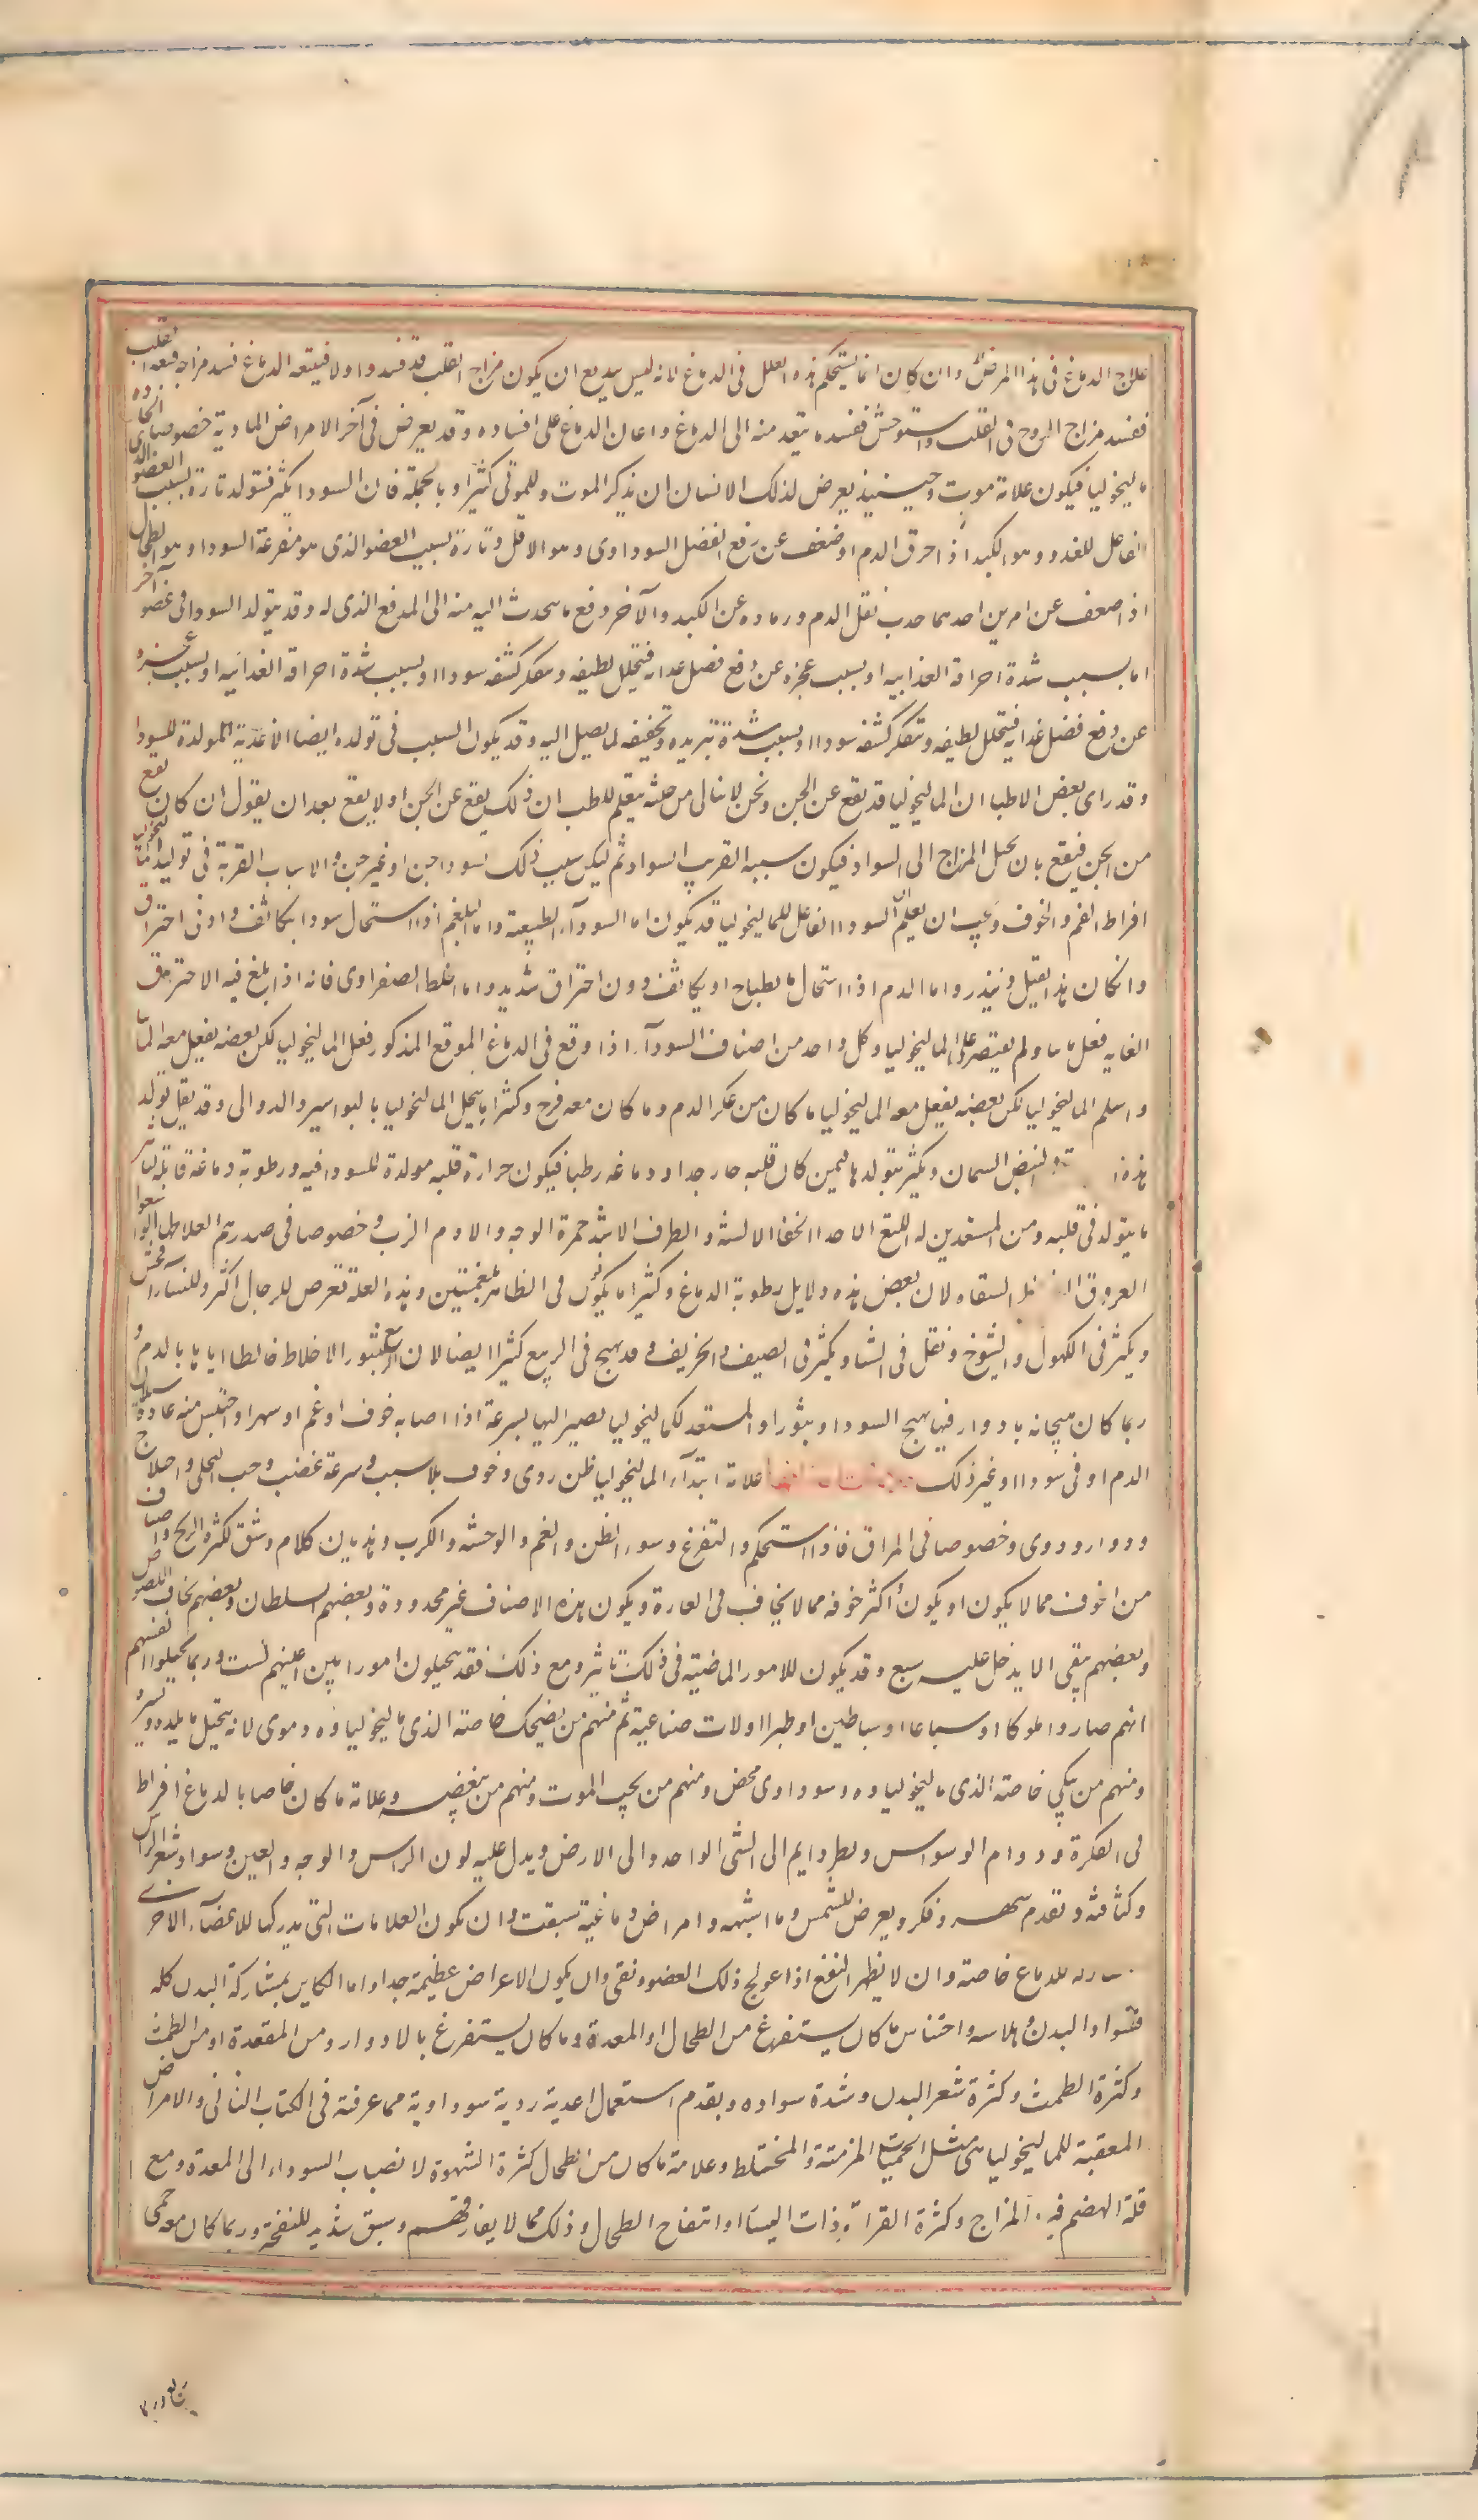 علاج الدماغ فى هذا المرض وان كان انما يستحكم هذه العلل فى الدماغ لانه ليس ببديع ان يكون مزاج القلب قد فسد اولا فيتبعه الدماغ فسد مزاجه فيتبعه القلب
ففسد مزاج الروح فى القلب واستوحش ففسد ما ينفذ منه الى الدماغ واعان الدماغ على افساده وقد يعرض فى آخر الامراض المادية خصوصا الحادة
ماليخوليا فيكون علامة موت وحينئذ يعرض لذلك الانسان ان يذكر الموت والموتى كثيرا وبالجملة فان السودا يكثر فتولد تارة بسبب العضو
الفاعل للغذو وهو الكبد اذا احرق الدم او ضعف عن دفع الفضل السوداوى وهو الاقل وتارة بسبب العضو الذى هو مفرغة السودا وهو الطحال
اذا ضعف عن امرين احدهما جذب ثقل الدم ورماده عن الكبد والآخر دفع ما يحدث اليه منه الى المدفع الذى له وقد يتولد السودا فى عضو آخر
اما بسبب شدة احراقه الغذائيه او بسبب عجزه عن دفع فضل غدايه فيتحلل لطيفه ويتعكر كثفه سودا او بسبب شدة احراقه الغدائيه او بسبب عجزه
عن دفع فضل غدايه فيتحلل لطيفه ويتعكر كثفه سودا او بسبب شدة تبريده وتجفيفه لما يصل اليه وقد يكون السبب فى تولده ايضا الاغذية المولدة للسودا
وقد راى بعض الاطبا ان الماليخوليا قد يقع عن الجن ونحن لا نبالى من حيث يتعلم الطب ان ذلك يقع عن الجن او لا يقع بعد ان يقول ان كان يقع
من الجن فيقع بان يحيل المزاج الى السوادا فيكون سببه القريب السوادا ثم ليكن سبب ذلك السودا جن او غير جن والاسباب القريبة فى توليد
افراط الغم والخوف ويجب ان يعلم ان السودا الفاعل للماليخوليا قد يكون اما السودآء الطبيعية واما البلغم اذا استحال سودا بتكاثف وادنى احتراق
وان كان هذا يقل ويندر واما الدم اذا استحال بانطباخ او بتكاثف دون احتراق شديد واما الخلط الصفراوى فانه اذا بلغ فيه الاحتراق
الغايه فعل مانيا ولم يقتصر على الماليخوليا وكل واحد من اصناف السودآء اذا وقع فى الدماغ الموقع المذكور فعل الماليخوليا لكن بعضه يفعل معه المانيا
واسلم الماليخوليا لكن بعضه يفعل معه الماليخوليا ما كان من عكر الدم وما كان معه فرح وكثيرا ما ينحل الماليخوليا بالبواسير والدوالى وقد يقل تولد
هذه البيض السمان ويكثر تولدها فيمن كان قلبه حارجدا ودماغه رطبا فيكون حرارة قلبه مولدة للسودا فيه ورطوبة دماغه قابلة
ما يتولد فى قلبه ومن المستعدين له اللثغ الاحدا الخفاف الالسنة والطرف الاشد حمرة الوجه والادم الزب وخصوصا فى صدرهم الغلاظ
العروق الشفاه لان بعض هذه دلايل رطوبة الدماغ وكثيرا ما يكون فى الظاهر بلغميين وهذه العلة تعرض للرجال اكثر وللنساء افحش
ويكثر فى الكهول والشيوخ ويقل فى الشتا ويكثر فى الصيف والخريف وقد يهيج فى الربيع كثيرا ايضا لان الربيع يثور الاخلاط خالطا اياها بالدم و
ربما كان هيجانه بادوار فيها يهيج السودا ويثور او المستعد للماليخوليا يصير اليها بسرعة اذا اصابه خوف او غم او سهر او احتبس منه عادة سيلان
الدم او قى سودا او غير ذلك علامة ابتدآء الماليخوليا ظن ردى وخوف بلا سبب وسرعة غضب وحب التخلى واختلاج
ودوار ودوى وخصوصا فى المراق فاذا استحكم والتفزع وسوء الظن والغم والوحشة والكرب وهذيان كلام وشبق لكثرة الريح واصناف
من الخوف مما لا يكون او يكون أكثر خوفه مما لا يخاف فى العادة ويكون هذه الاصناف غير محدودة وبعضهم السلطان وبعضهم يخاف اللصوص
وبعضهم يتقى الا يدخل عليه سبع وقد يكون للامور الماضية فى ذلك تاثير ومع ذلك فقد يتخيلون امورا بين اعينهم ليست وربما تخيلوا انفسهم
انهم صاروا ملوكا او سباعا او شياطين او طيرا او الات صناعية ثم منهم من يضحك خاصة الذى ماليخولياؤه دموى لانه يتخيل ما يلذه ويسره
ومنهم من يبكى خاصته الذى ماليخولياوه وسوداوى محض ومنهم من يحب الموت ومنهم من يبغضه وعلامة ما كان خاصا بالدماغ افراط
فى الفكرة ودوام الوسواس ونظر دايم الى الشى الواحد والى الارض ويدل عليه لون الراس والوجه والعين وسواد شعر الراس
وكثافته وتقدم سهر وفكر ويعرض للشمس وما اشبهه وامراض دماغية سبقت وان يكون العلامات التى يدركها للاعضآء الاخرى
للدماغ خاصته وان لا يظهر النفع اذا عولج ذلك العضو ونقى وان يكون الاعراض عظيمة جدا واما الكاين بمشاركة البدن كله
فسواد البدن وهلاسه واحتباس ما كان يستفرغ من الطحال او المعدة وما كان يستفرغ بالادوار ومن المقعدة او من الطمث
وكثرة الطمث وكثرة شعر البدن وشدة سواده وبقدم استعمال اغدية ردية سوداوية مما عرفته فى الكتاب الثانى والامراض
المعقبة للماليخوليا هى مثل الحميات المزمنة والمختلط وعلامة ما كان من الطحال كثرة الشهوة لانصباب السوداء الى المعدة ومع
قلة الهضم المزاج وكثرة القراقر ذات اليسار وانتفاخ الطحال وذلك مما لا يفارقهم وسبق شديد للنفخة وربما كان معه حمى